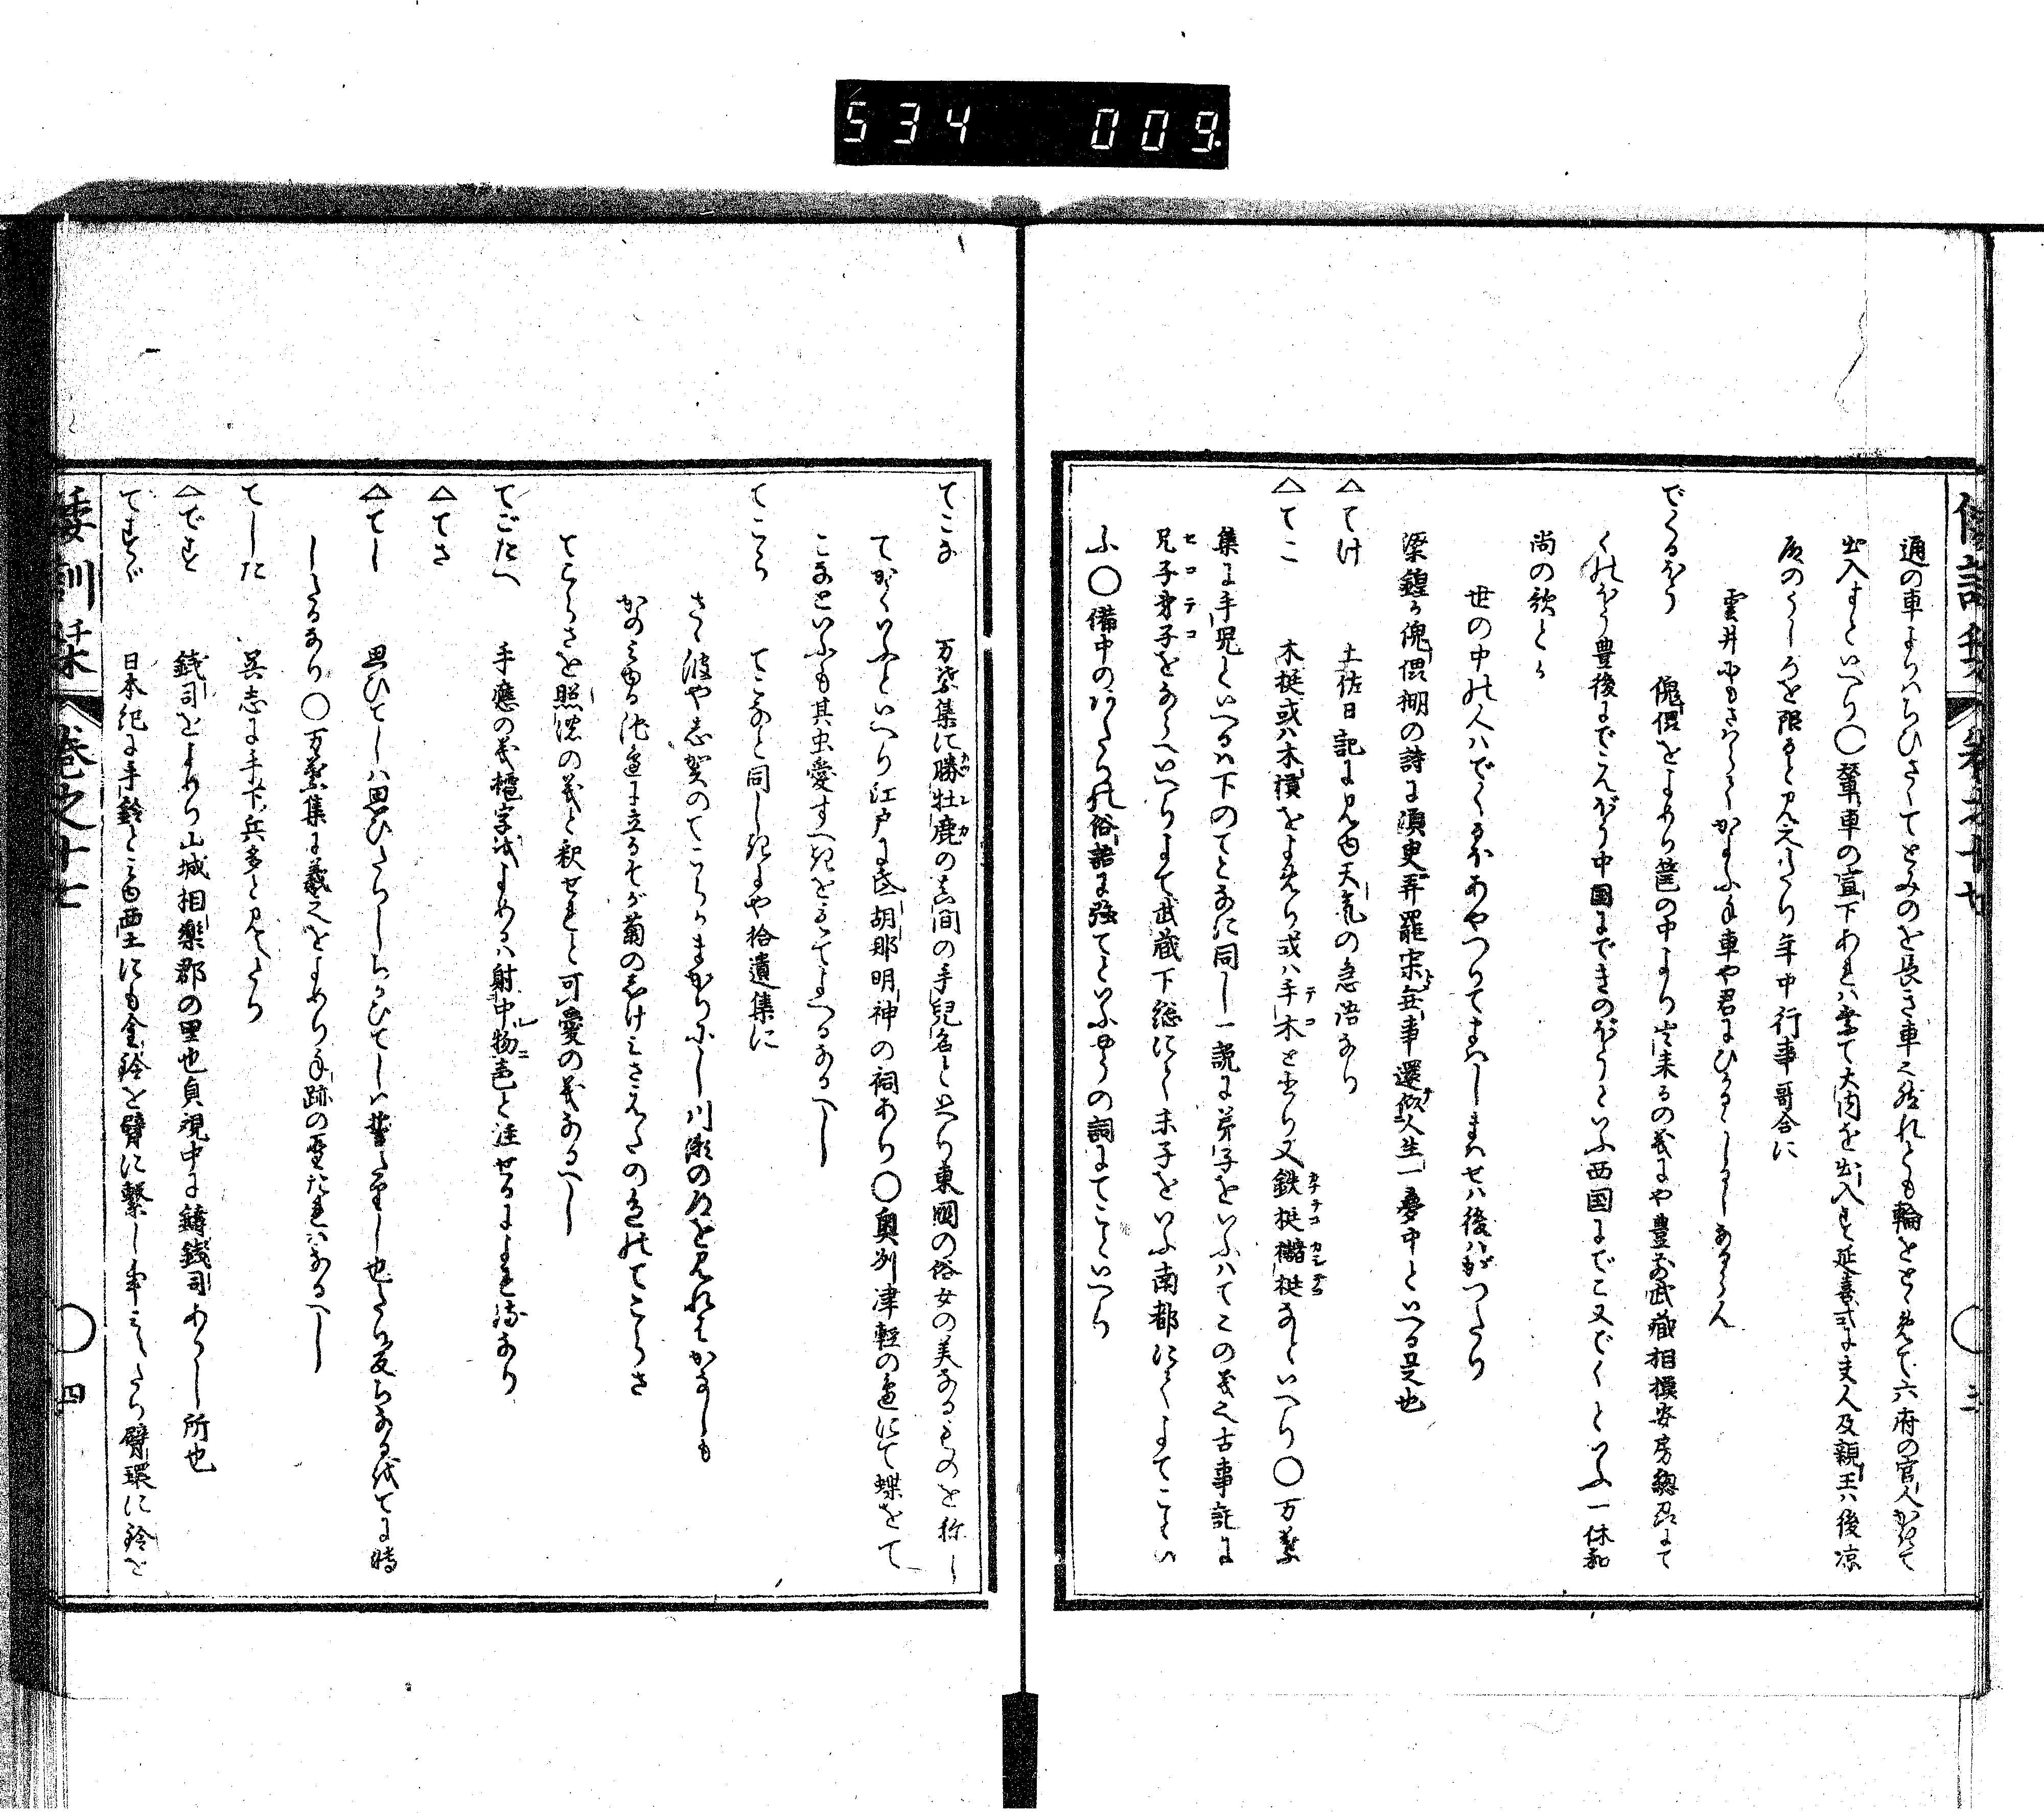 534 009
通の車よりハちひさくてとみのを長き車之然れとも輪をとゝめて六府の官人かけて
出入すといへり〇輦車の宣下あれハ乗て大内を出入す延喜式に夫人及親王ハ後涼
殿のうしろを限ると見えたり年中行事哥合に
雲井にもさはらてかよふ手車や君にひかるゝしるしあるらん
でくるぼう 傀儡をよめり筐の中より出来るの義にや豊前武蔵相摸安房總州にて
くれぼう豊後にでこんぼう中国にできのぼうといふ西国にでこ又でくといふ一休和
尚の歌とて
世の中の人ハでくるぼあやつりてまハしまハせハ後ハがつたり
梁鍠か傀儡棚の詩に須臾弄罷寂無事還似人生一夢中といへる是也
△てけ 土佐日記に見ゆ天気の急語なり
△てこ 木梃或ハ木槓をよめり或ハ手木と書り又鉄梃櫧梃なといへり〇万葉
集に手児といへるハ下のてこなに同し一説に弟子をいふハてこの義之古事記に
兄子弟子をならへいへりまて武蔵下総にて末子をいふ南都にてまてこといい
ふ〇備中のわたりの俗語に強てといふ時の詞にてことといへり
倭訓栞 巻之十七 三
てこな 万葉集に勝牡鹿の真間の手児名と也へり東国の俗女の美なるものを称し
てかくいふといへり江戸に手胡那明神の祠あり〇奥州津軽の邊にて蝶をて
こなといふも其虫愛すへきをもてまへるなるへし
てこら てこなと同しきにや拾遺集に
さゝ波や志賀のてこらかまかりにし川瀬の道を見れはかなしも
かのミゆる池邊に立るそか菊のしけミさえたの色のてこらさ
てこらさを照濃の義と釈せれと可愛の義なるへし
てごたへ 手應の義檀字弐よめるハ射中物声と注せるによれるなり
△てさ
△てし 思ひてしハ思ひたりしちかひてしハ誓たりし也たり反ちなる代てに轉
しゝるなり〇万葉集に羲之をよめり手跡の聖なれハなるへし
てした 呉志に手下兵多と見えたり
△です 銭司をよめり山城相楽郡の里也貞観中に鋳銭司ありし所也
てすゞ 日本紀に手鈴と云ゆ西土にも金鈴を臂に繋し事ミえたり臂環に鈴を
倭訓栞 巻之十七 四